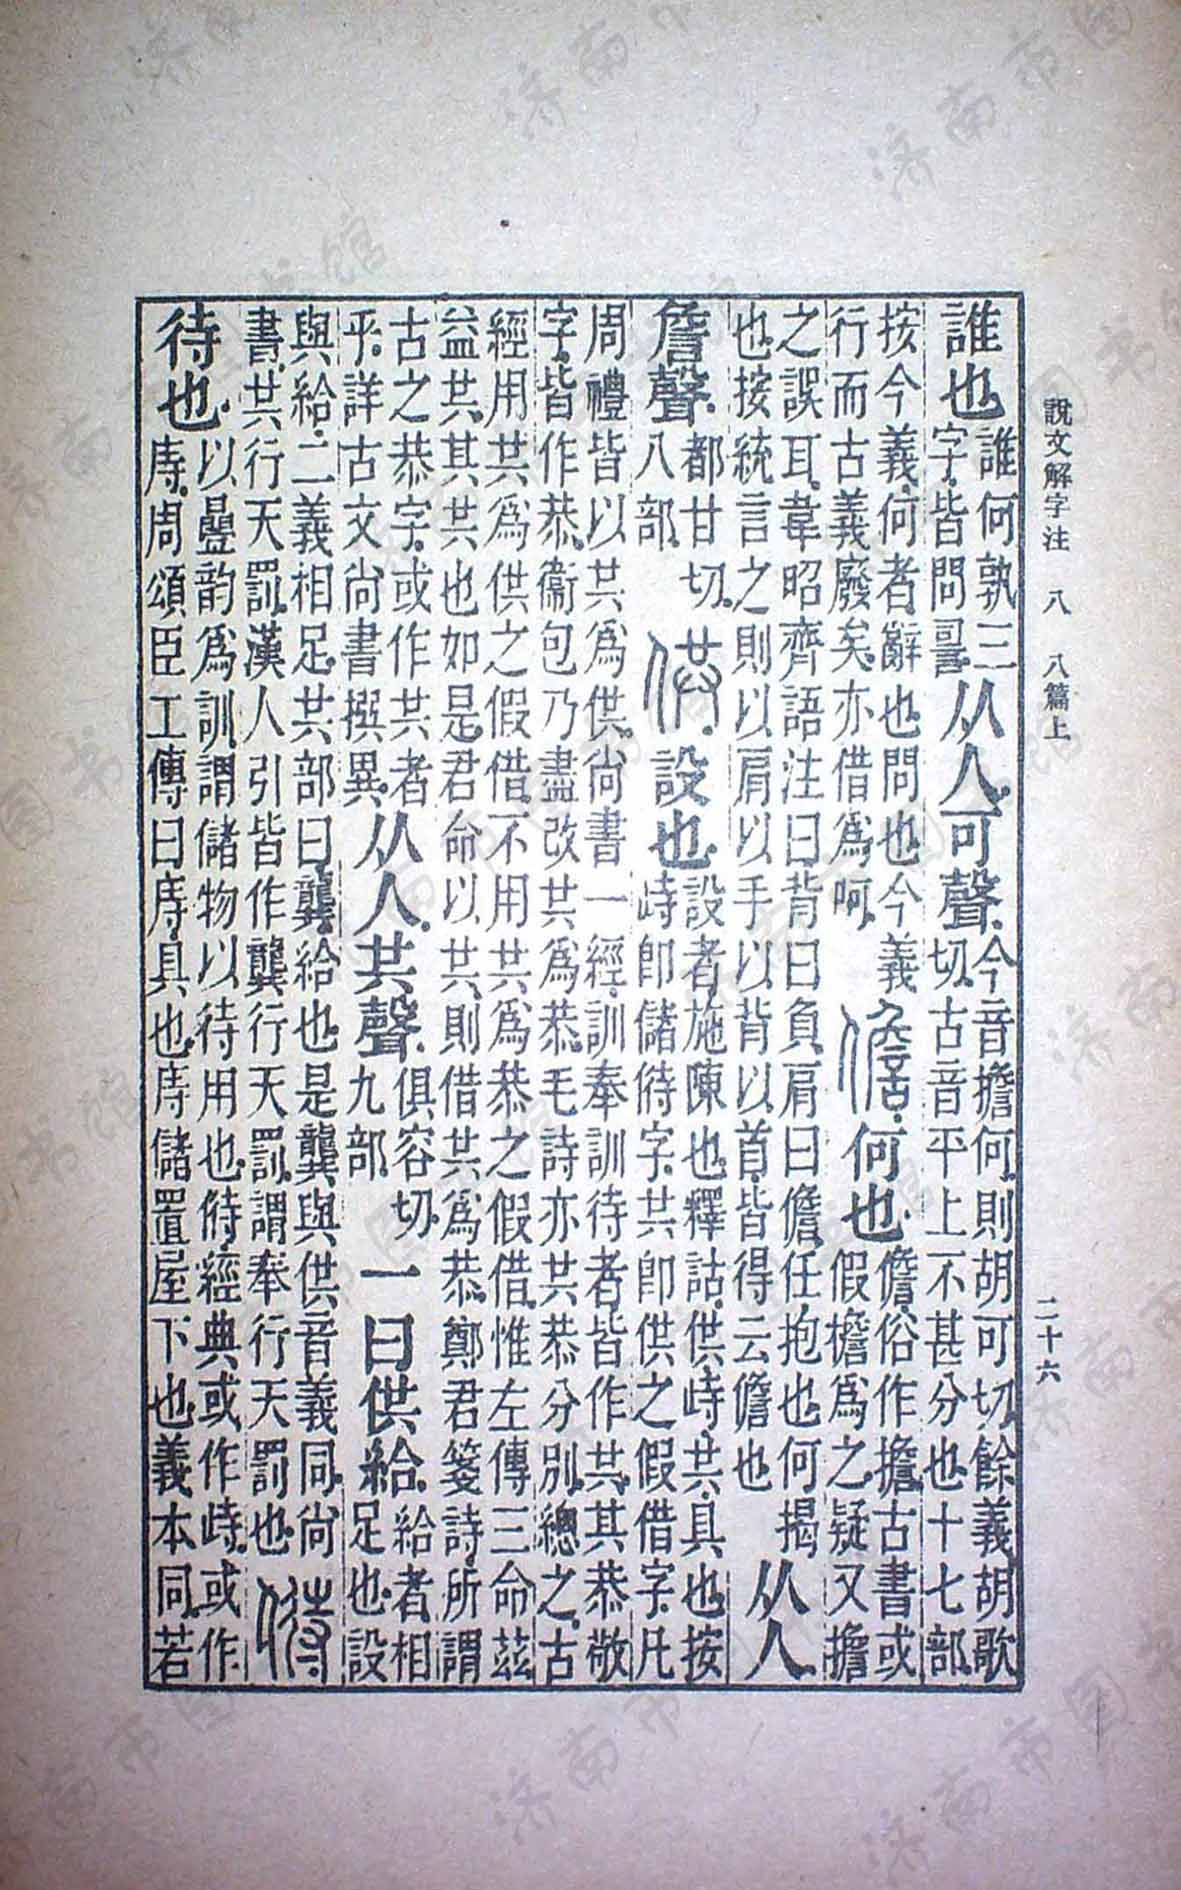 說文解字注 八 八篇上 二十六
誰也。誰何孰三字。皆問䛐。从人。可聲。今音擔何。則胡可切。餘義胡歌切。古音平上不甚分也。十七部。
按今義。何者。辭也。問也。今義行而古義廢矣。亦借爲呵。儋。何也。儋。俗作擔。古書或假檐爲之。疑又擔
之誤耳。韋昭齊語注曰。背曰負。肩曰儋。任。抱也。何。揭也。按統言之則以肩以手以背以首。皆得云儋也。从人
詹聲。都甘切。八部。供。設也。設者。施陳也。釋詁。供峙共。具也。按峙卽儲偫字。共卽供之假借字。凡
周禮皆以共爲供。尚書一經。訓奉訓待者。皆作共。其恭敬字。皆作恭。衞包乃盡改共爲恭。毛詩亦共恭分別。緫之。古
經用共爲供之假借。不用共爲恭之假借。惟左傳三命茲益共。其共也如是。君命以共。則借共爲恭。鄭君箋詩所謂
古之恭字。或作共者乎。詳古文尚書撰異。从人。共聲。俱容切。九部。一曰供給。給者。相足也。設
與給二義相足。共部曰。龔。給也。是龔與供音義同。尚書。共行天罰。漢人引皆作龔行天罰。謂奉行天罰也。偫
待也。以疊韵爲訓。謂儲物以待用也。偫經典或作峙。或作庤。周頌臣工傳曰。庤。具也。庤。儲置屋下也。義本同。若